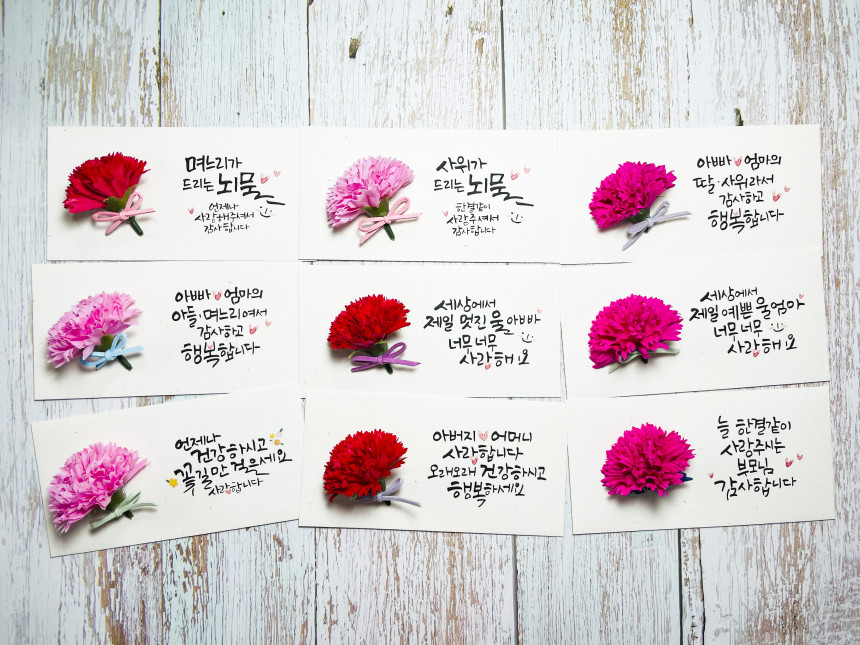 며느리가
드리는 뇌물
언제나
사랑해주셔서
감사합니다
사위가
드리는 뇌물
한결같이
사랑주셔서
감사합니다
아빠 엄마의
딸·사위라서
감사하고
행복합니다
아빠 엄마의
아들·며느리여서
감사하고
행복합니다
세상에서
제일 멋진 울아빠
너무너무
사랑해요
세상에서
제일 예쁜 울엄마
너무너무
사랑해요
언제나
건강하시고
꽃길만 걸으세요
사랑합니다
아버지 어머니
사랑합니다
오래오래 건강하시고
행복하세요
늘 한결같이
사랑주시는
부모님
감사합니다